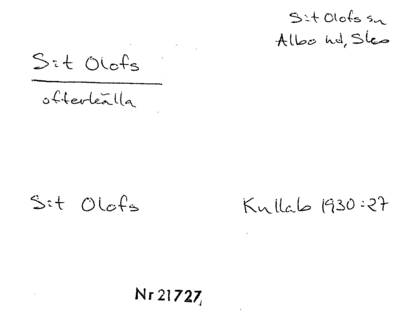 S:t Olofs sn
Albo hd, Skå
S:t Olofs
offerkälla
S:t Olofs
Kullab 1930:27
Nr 21727